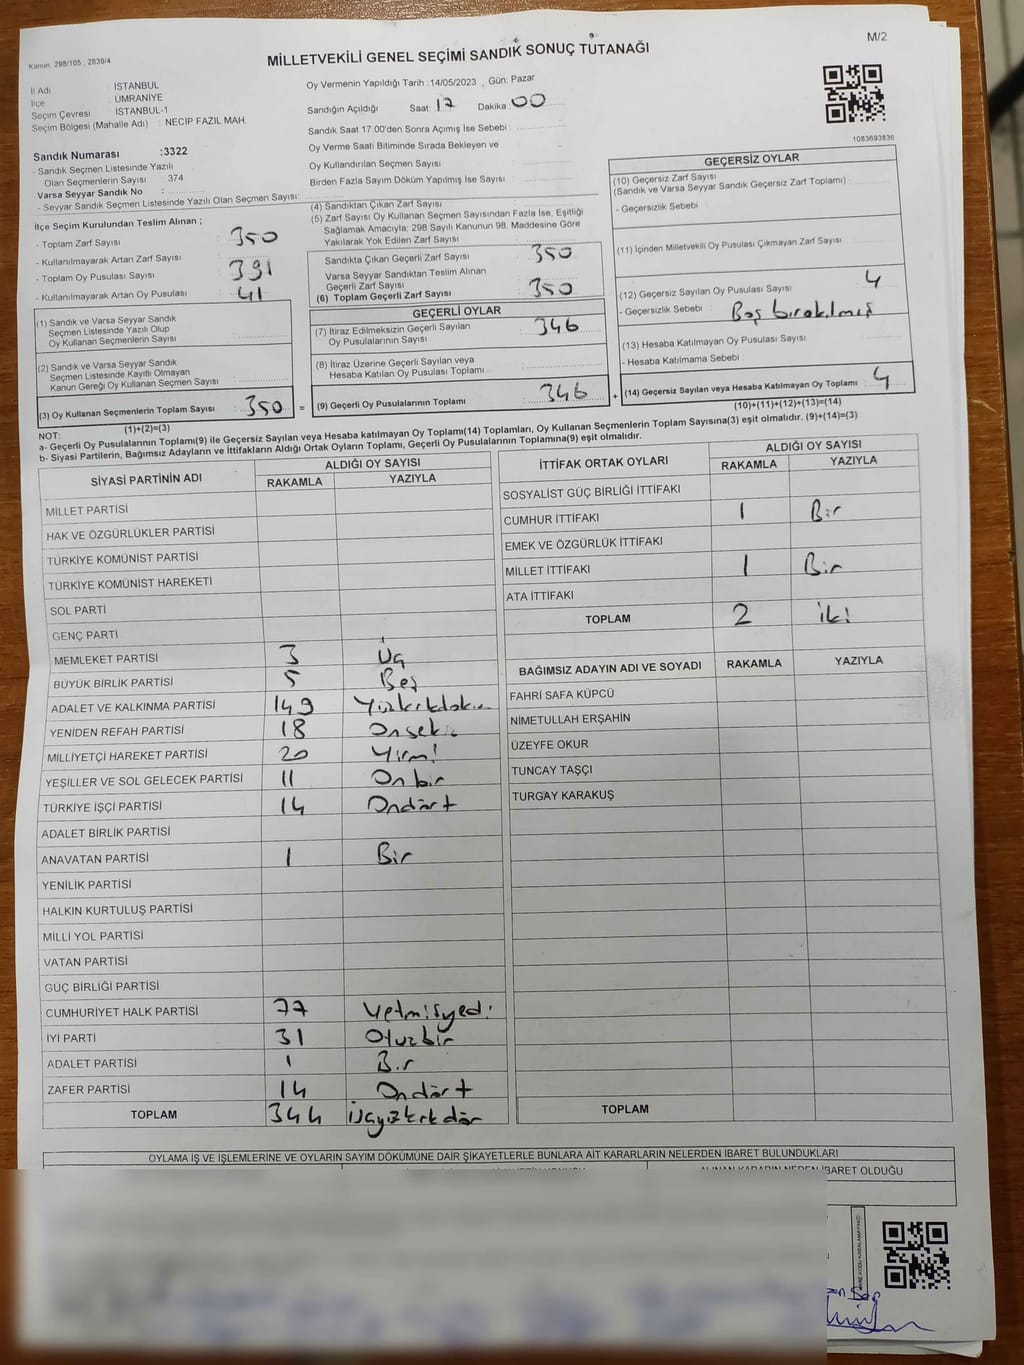 MİLLETVEKİLİ GENEL SEÇİMİ SANDIK SONUÇ TUTANAĞI
M/2
Kanun: 298/105 , 2839/4
İl Adı İSTANBUL
İlçe ÜMRANİYE
Seçim Çevresi İSTANBUL-1
Seçim Bölgesi (Mahalle Adı) : NECİP FAZIL MAH.
Sandık Numarası :3322
- Sandık Seçmen Listesinde Yazılı
Olan Seçmenlerin Sayısı 374
Varsa Seyyar Sandık No :
- Seyyar Sandık Seçmen Listesinde Yazılı Olan Seçmen Sayısı:
Oy Vermenin Yapıldığı Tarih :14/05/2023 , Gün: Pazar
Sandığın Açıldığı Saat: 17 Dakika 00
Sandık Saat 17:00'den Sonra Açılmış İse Sebebi :
Oy Verme Saati Bitiminde Sırada Bekleyen ve
Oy Kullandırılan Seçmen Sayısı :
Birden Fazla Sayım Döküm Yapılmış İse Sayısı :
1083693836
İlçe Seçim Kurulundan Teslim Alınan ;
- Toplam Zarf Sayısı : 350
- Kullanılmayarak Artan Zarf Sayısı :
- Toplam Oy Pusulası Sayısı : 391
- Kullanılmayarak Artan Oy Pusulası : 41
(1) Sandık ve Varsa Seyyar Sandık
Seçmen Listesinde Yazılı Olup
Oy Kullanan Seçmenlerin Sayısı :
(2) Sandık ve Varsa Seyyar Sandık
Seçmen Listesinde Kayıtlı Olmayan
Kanun Gereği Oy Kullanan Seçmen Sayısı :
(3) Oy Kullanan Seçmenlerin Toplam Sayısı : 350 =
(1)+(2)=(3)
(4) Sandıktan Çıkan Zarf Sayısı :
(5) Zarf Sayısı Oy Kullanan Seçmen Sayısından Fazla İse, Eşitliği
Sağlamak Amacıyla; 298 Sayılı Kanunun 98. Maddesine Göre
Yakılarak Yok Edilen Zarf Sayısı :
Sandıkta Çıkan Geçerli Zarf Sayısı : 350
Varsa Seyyar Sandıktan Teslim Alınan
Geçerli Zarf Sayısı :
(6) Toplam Geçerli Zarf Sayısı : 350
GEÇERLİ OYLAR
(7) İtiraz Edilmeksizin Geçerli Sayılan
Oy Pusulalarının Sayısı : 346
(8) İtiraz Üzerine Geçerli Sayılan veya
Hesaba Katılan Oy Pusulası Toplamı :
(9) Geçerli Oy Pusulalarının Toplamı : 346 +
GEÇERSİZ OYLAR
(10) Geçersiz Zarf Sayısı
(Sandık ve Varsa Seyyar Sandık Geçersiz Zarf Toplamı) :
- Geçersizlik Sebebi :
(11) İçinden Milletvekili Oy Pusulası Çıkmayan Zarf Sayısı :
(12) Geçersiz Sayılan Oy Pusulası Sayısı : 4
- Geçersizlik Sebebi : Boş bırakılmış
(13) Hesaba Katılmayan Oy Pusulası Sayısı :
- Hesaba Katılmama Sebebi :
(14) Geçersiz Sayılan veya Hesaba Katılmayan Oy Toplamı : 4
(10)+(11)+(12)+(13)=(14)
NOT:
a- Geçerli Oy Pusulalarının Toplamı(9) ile Geçersiz Sayılan veya Hesaba katılmayan Oy Toplamı(14) Toplamları, Oy Kullanan Seçmenlerin Toplam Sayısına(3) eşit olmalıdır. (9)+(14)=(3)
b- Siyasi Partilerin, Bağımsız Adayların ve İttifakların Aldığı Ortak Oyların Toplamı, Geçerli Oy Pusulalarının Toplamına(9) eşit olmalıdır.
SİYASİ PARTİNİN ADI ALDIĞI OY SAYISI
RAKAMLA YAZIYLA
MİLLET PARTİSİ
HAK VE ÖZGÜRLÜKLER PARTİSİ
TÜRKİYE KOMÜNİST PARTİSİ
TÜRKİYE KOMÜNİST HAREKETİ
SOL PARTİ
GENÇ PARTİ
MEMLEKET PARTİSİ 3 Üç
BÜYÜK BİRLİK PARTİSİ 5 Beş
ADALET VE KALKINMA PARTİSİ 149 Yüzkırkdoku
YENİDEN REFAH PARTİSİ 18 Onseki
MİLLİYETÇİ HAREKET PARTİSİ 20 Yirmi
YEŞİLLER VE SOL GELECEK PARTİSİ 11 Onbir
TÜRKİYE İŞÇİ PARTİSİ 14 Ondört
ADALET BİRLİK PARTİSİ
ANAVATAN PARTİSİ 1 Bir
YENİLİK PARTİSİ
HALKIN KURTULUŞ PARTİSİ
MİLLİ YOL PARTİSİ
VATAN PARTİSİ
GÜÇ BİRLİĞİ PARTİSİ
CUMHURİYET HALK PARTİSİ 77 Yetmişyedi
İYİ PARTİ 31 Otuzbir
ADALET PARTİSİ 1 Bir
ZAFER PARTİSİ 14 Ondört
TOPLAM 344 Üçyüzkırkdör
İTTİFAK ORTAK OYLARI ALDIĞI OY SAYISI
RAKAMLA YAZIYLA
SOSYALİST GÜÇ BİRLİĞİ İTTİFAKI
CUMHUR İTTİFAKI 1 Bir
EMEK VE ÖZGÜRLÜK İTTİFAKI
MİLLET İTTİFAKI 1 Bir
ATA İTTİFAKI
TOPLAM 2 iki
BAĞIMSIZ ADAYIN ADI VE SOYADI RAKAMLA YAZIYLA
FAHRİ SAFA KÜPCÜ
NİMETULLAH ERŞAHİN
ÜZEYFE OKUR
TUNCAY TAŞÇI
TURGAY KARAKUŞ
TOPLAM
OYLAMA İŞ VE İŞLEMLERİNE VE OYLARIN SAYIM DÖKÜMÜNE DAİR ŞİKAYETLERLE BUNLARA AİT KARARLARIN NELERDEN İBARET BULUNDUKLARI
ALINAN KARARIN NEDEN İBARET OLDUĞU